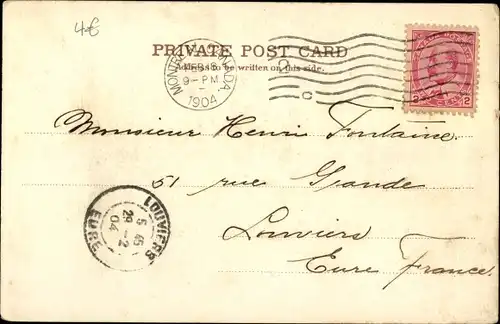 4€
PRIVATE POST CARD
Address to be written on this side.
MONTREAL, CANADA.
9-PM
1904
2 2
Monsieur Henri Fontaine.
51 rue Grande
Louviers
Eure France.
LOUVIERS
5 45
29 -2
04
EURE